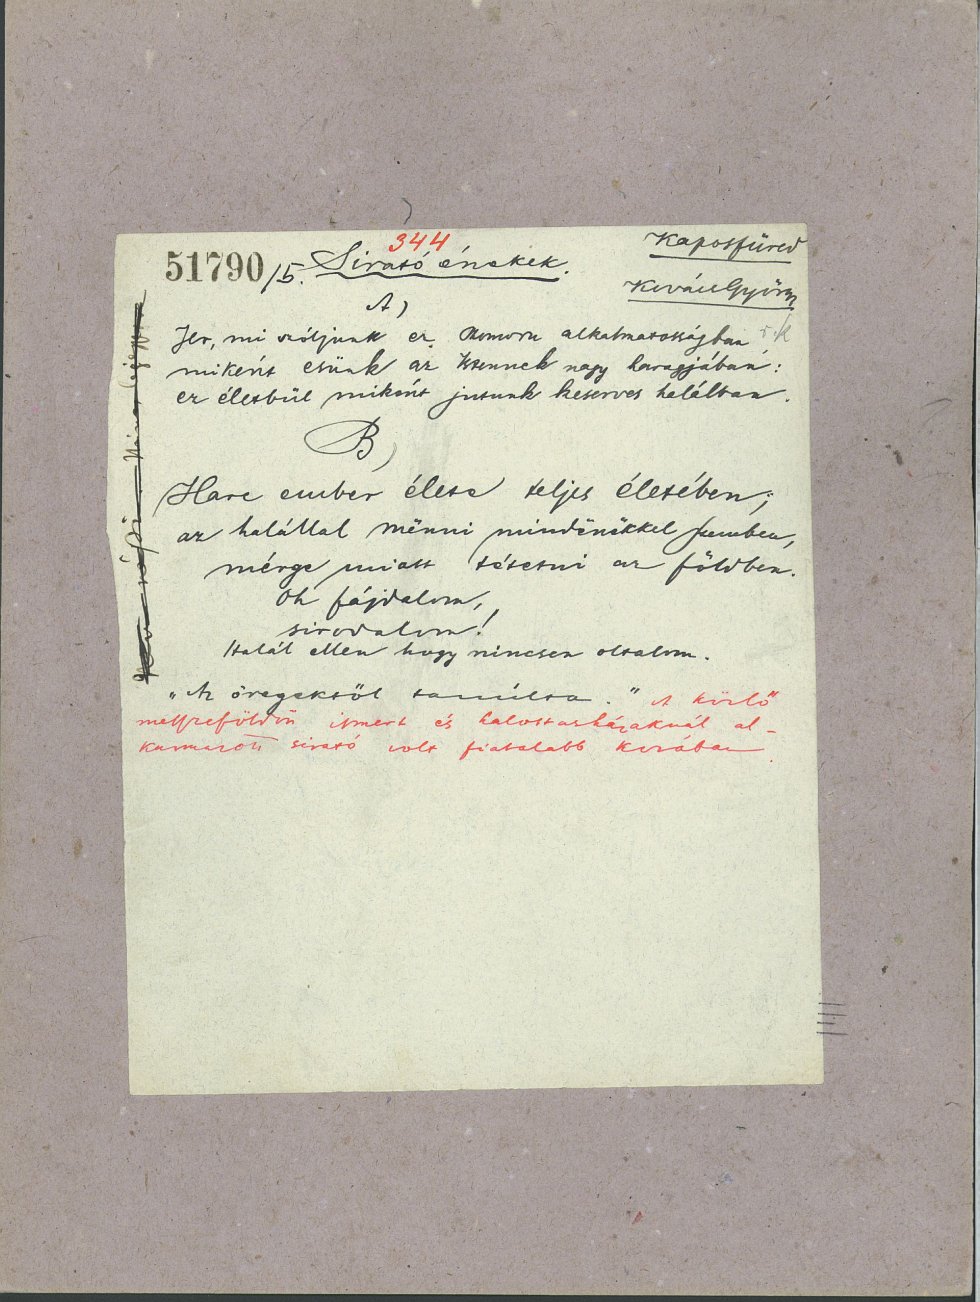 344
51790/5. Sirató énekek.
Kaposfüred
Kovács György
A)
Jer, mi szóljunk ez szomoru alkalmatosságban
miként esünk az Istennek nagy haragjában:
ez életbül miként jutunk keserves halálban.
B)
Harc ember élete teljes életében;
az halállal mënni mindënëkkel szemben,
mérge miatt tétetni az földben.
Oh fájdalom,
sirodalom!
Halál ellen hogy nincsen oltalom.
"Az öregektöl tanúlta." A közlő
messzeföldön ismert és halottasházaknál al-
kamazott sirató volt fiatalabb korában.